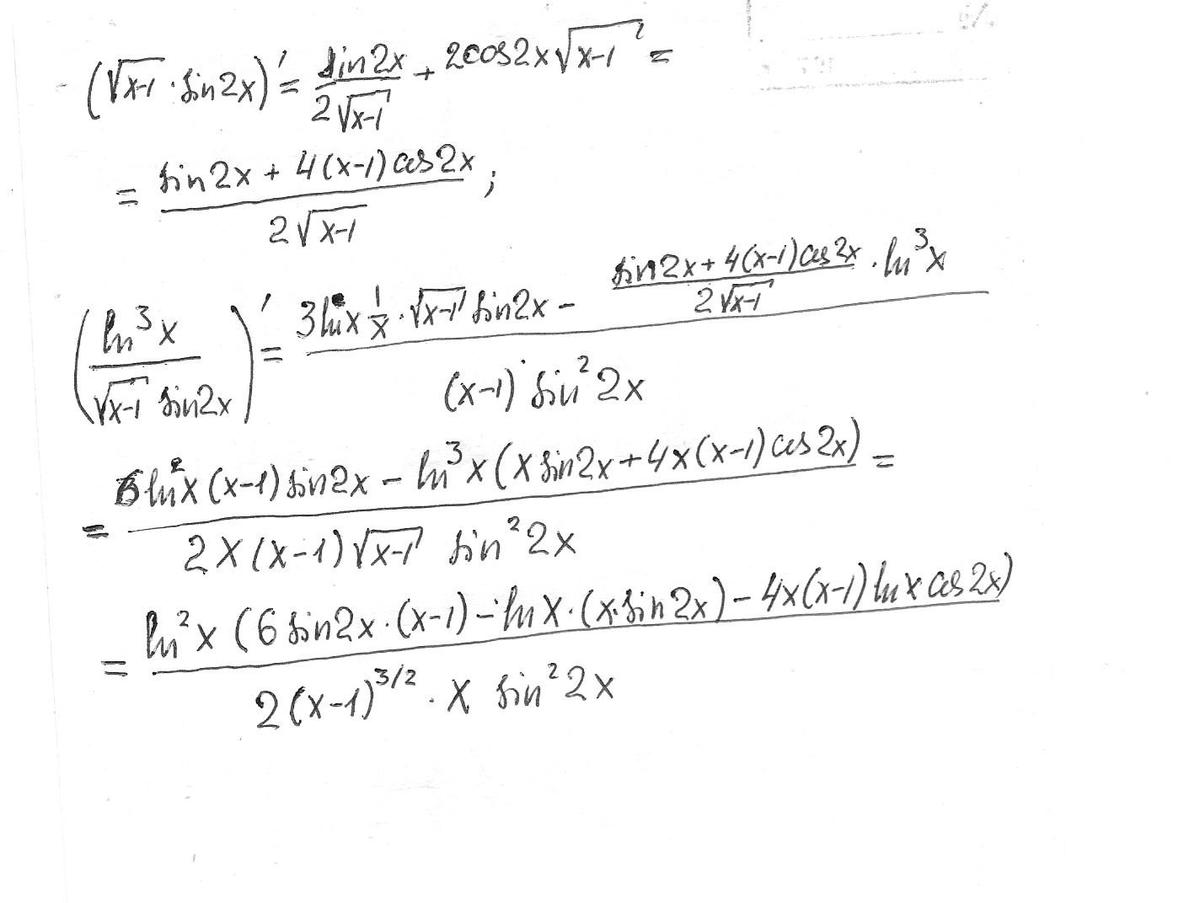 (√(x-1) · sin2x)' = sin2x / 2√(x-1) + 2cos2x√(x-1) =
= (sin2x + 4(x-1)cos2x) / 2√(x-1) ;
(ln³x / √(x-1) sin2x)' = (3ln²x 1/x · √(x-1) sin2x - (sin2x + 4(x-1)cos2x) / 2√(x-1) · ln³x) / (x-1) sin²2x
= (6ln²x (x-1) sin2x - ln³x (x sin2x + 4x(x-1)cos2x)) / 2x(x-1)√(x-1) sin²2x =
= ln²x (6 sin2x · (x-1) - lnx · (x · sin2x) - 4x(x-1) lnx cos2x) / 2(x-1)^3/2 · x sin²2x